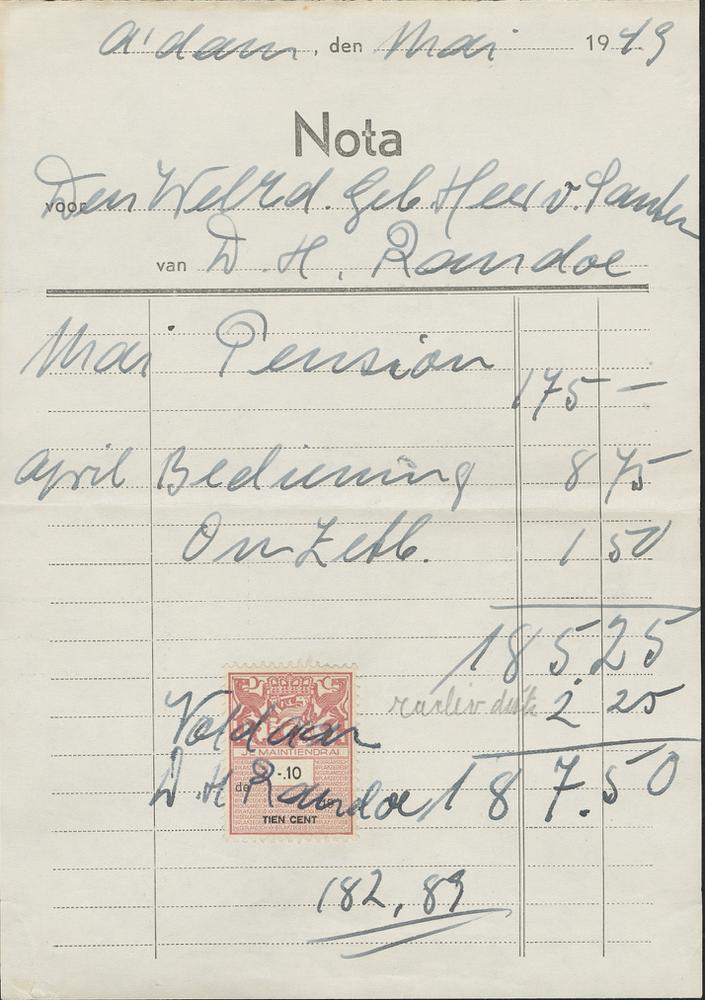 A'dam, den Mai 1949
Nota
voor Den WelEd. Geb Heer v. Santen
van D. H. Randoe
Mai Pension 175 —
April Bediening 8 75
Onzetb. 1 50
185 25
2 25
Voldaan
JE MAINTIENDRAI
-.10
de
D. H. Randoe 187.50
TIEN CENT
182,89